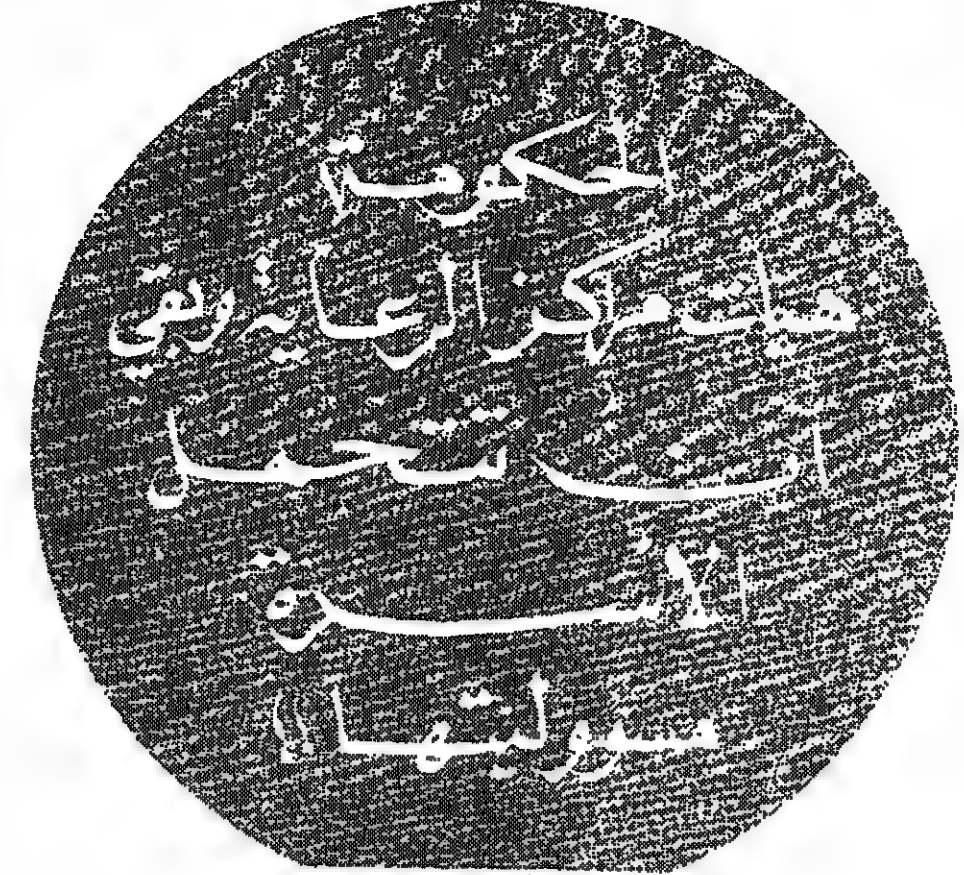 الحكومة
هيأت مراكز الرعاية وبقي
ان تتحمل
الاسرة
مسئوليتها !!